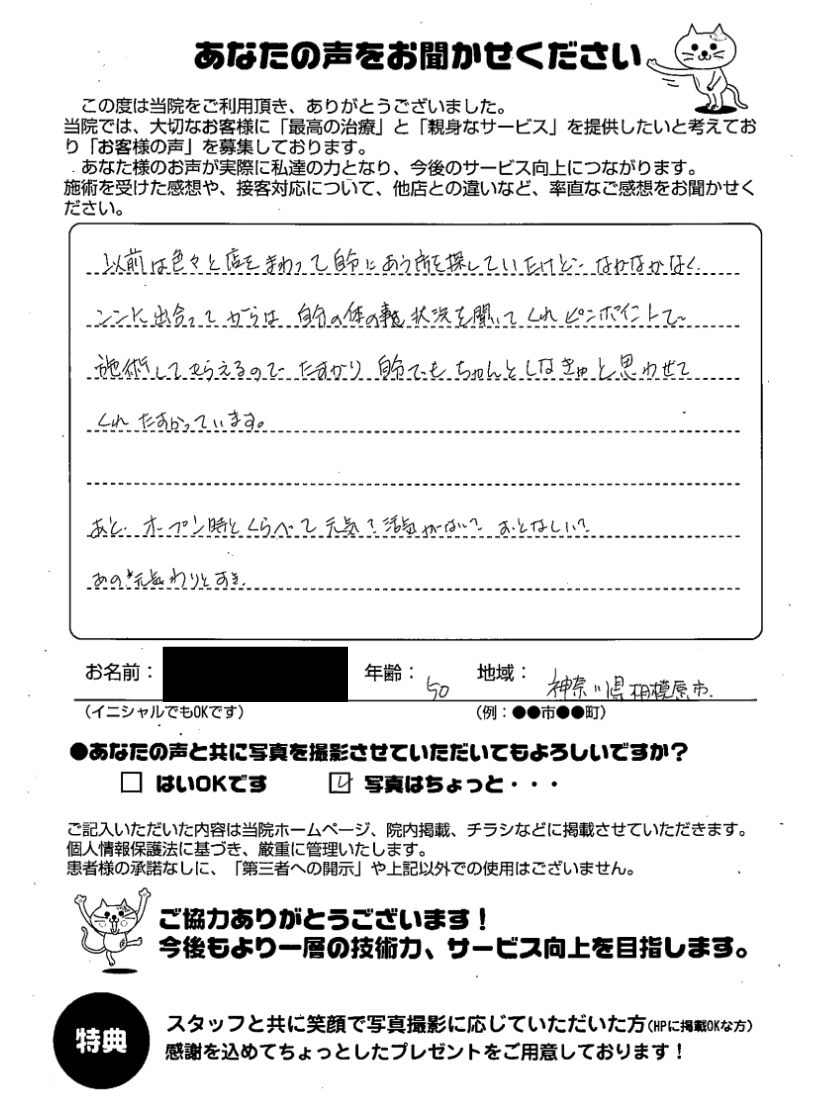 あなたの声をお聞かせください
この度は当院をご利用頂き、ありがとうございました。
当院では、大切なお客様に「最高の治療」と「親身なサービス」を提供したいと考えてお
り「お客様の声」を募集しております。
あなた様のお声が実際に私達の力となり、今後のサービス向上につながります。
施術を受けた感想や、接客対応について、他店との違いなど、率直なご感想をお聞かせく
ださい。
以前は色々と店をまわって自分にあう所を探していたけどなかなかなく
に出合ってからは 自分の体の 状況を聞いてくれピンポイントで
施術してもらえるので たすかり 自分でも ちゃんとしなきゃと思わせて
くれ たすかっています。
あと、オープン時とくらべて元気?活気がない?おとなしい?
あの元気わりとすき、
お名前:
年齢: 50
地域: 神奈川県相模原市
(イニシャルでもOKです)
(例:●●市●●町)
●あなたの声と共に写真を撮影させていただいてもよろしいですか?
□ はいOKです ☑ 写真はちょっと・・・
ご記入いただいた内容は当院ホームページ、院内掲載、チラシなどに掲載させていただきます。
個人情報保護法に基づき、厳重に管理いたします。
患者様の承諾なしに、「第三者への開示」や上記以外での使用はございません。
ご協力ありがとうございます!
今後もより一層の技術力、サービス向上を目指します。
特典
スタッフと共に笑顔で写真撮影に応じていただいた方(HPに掲載OKな方)
感謝を込めてちょっとしたプレゼントをご用意しております!